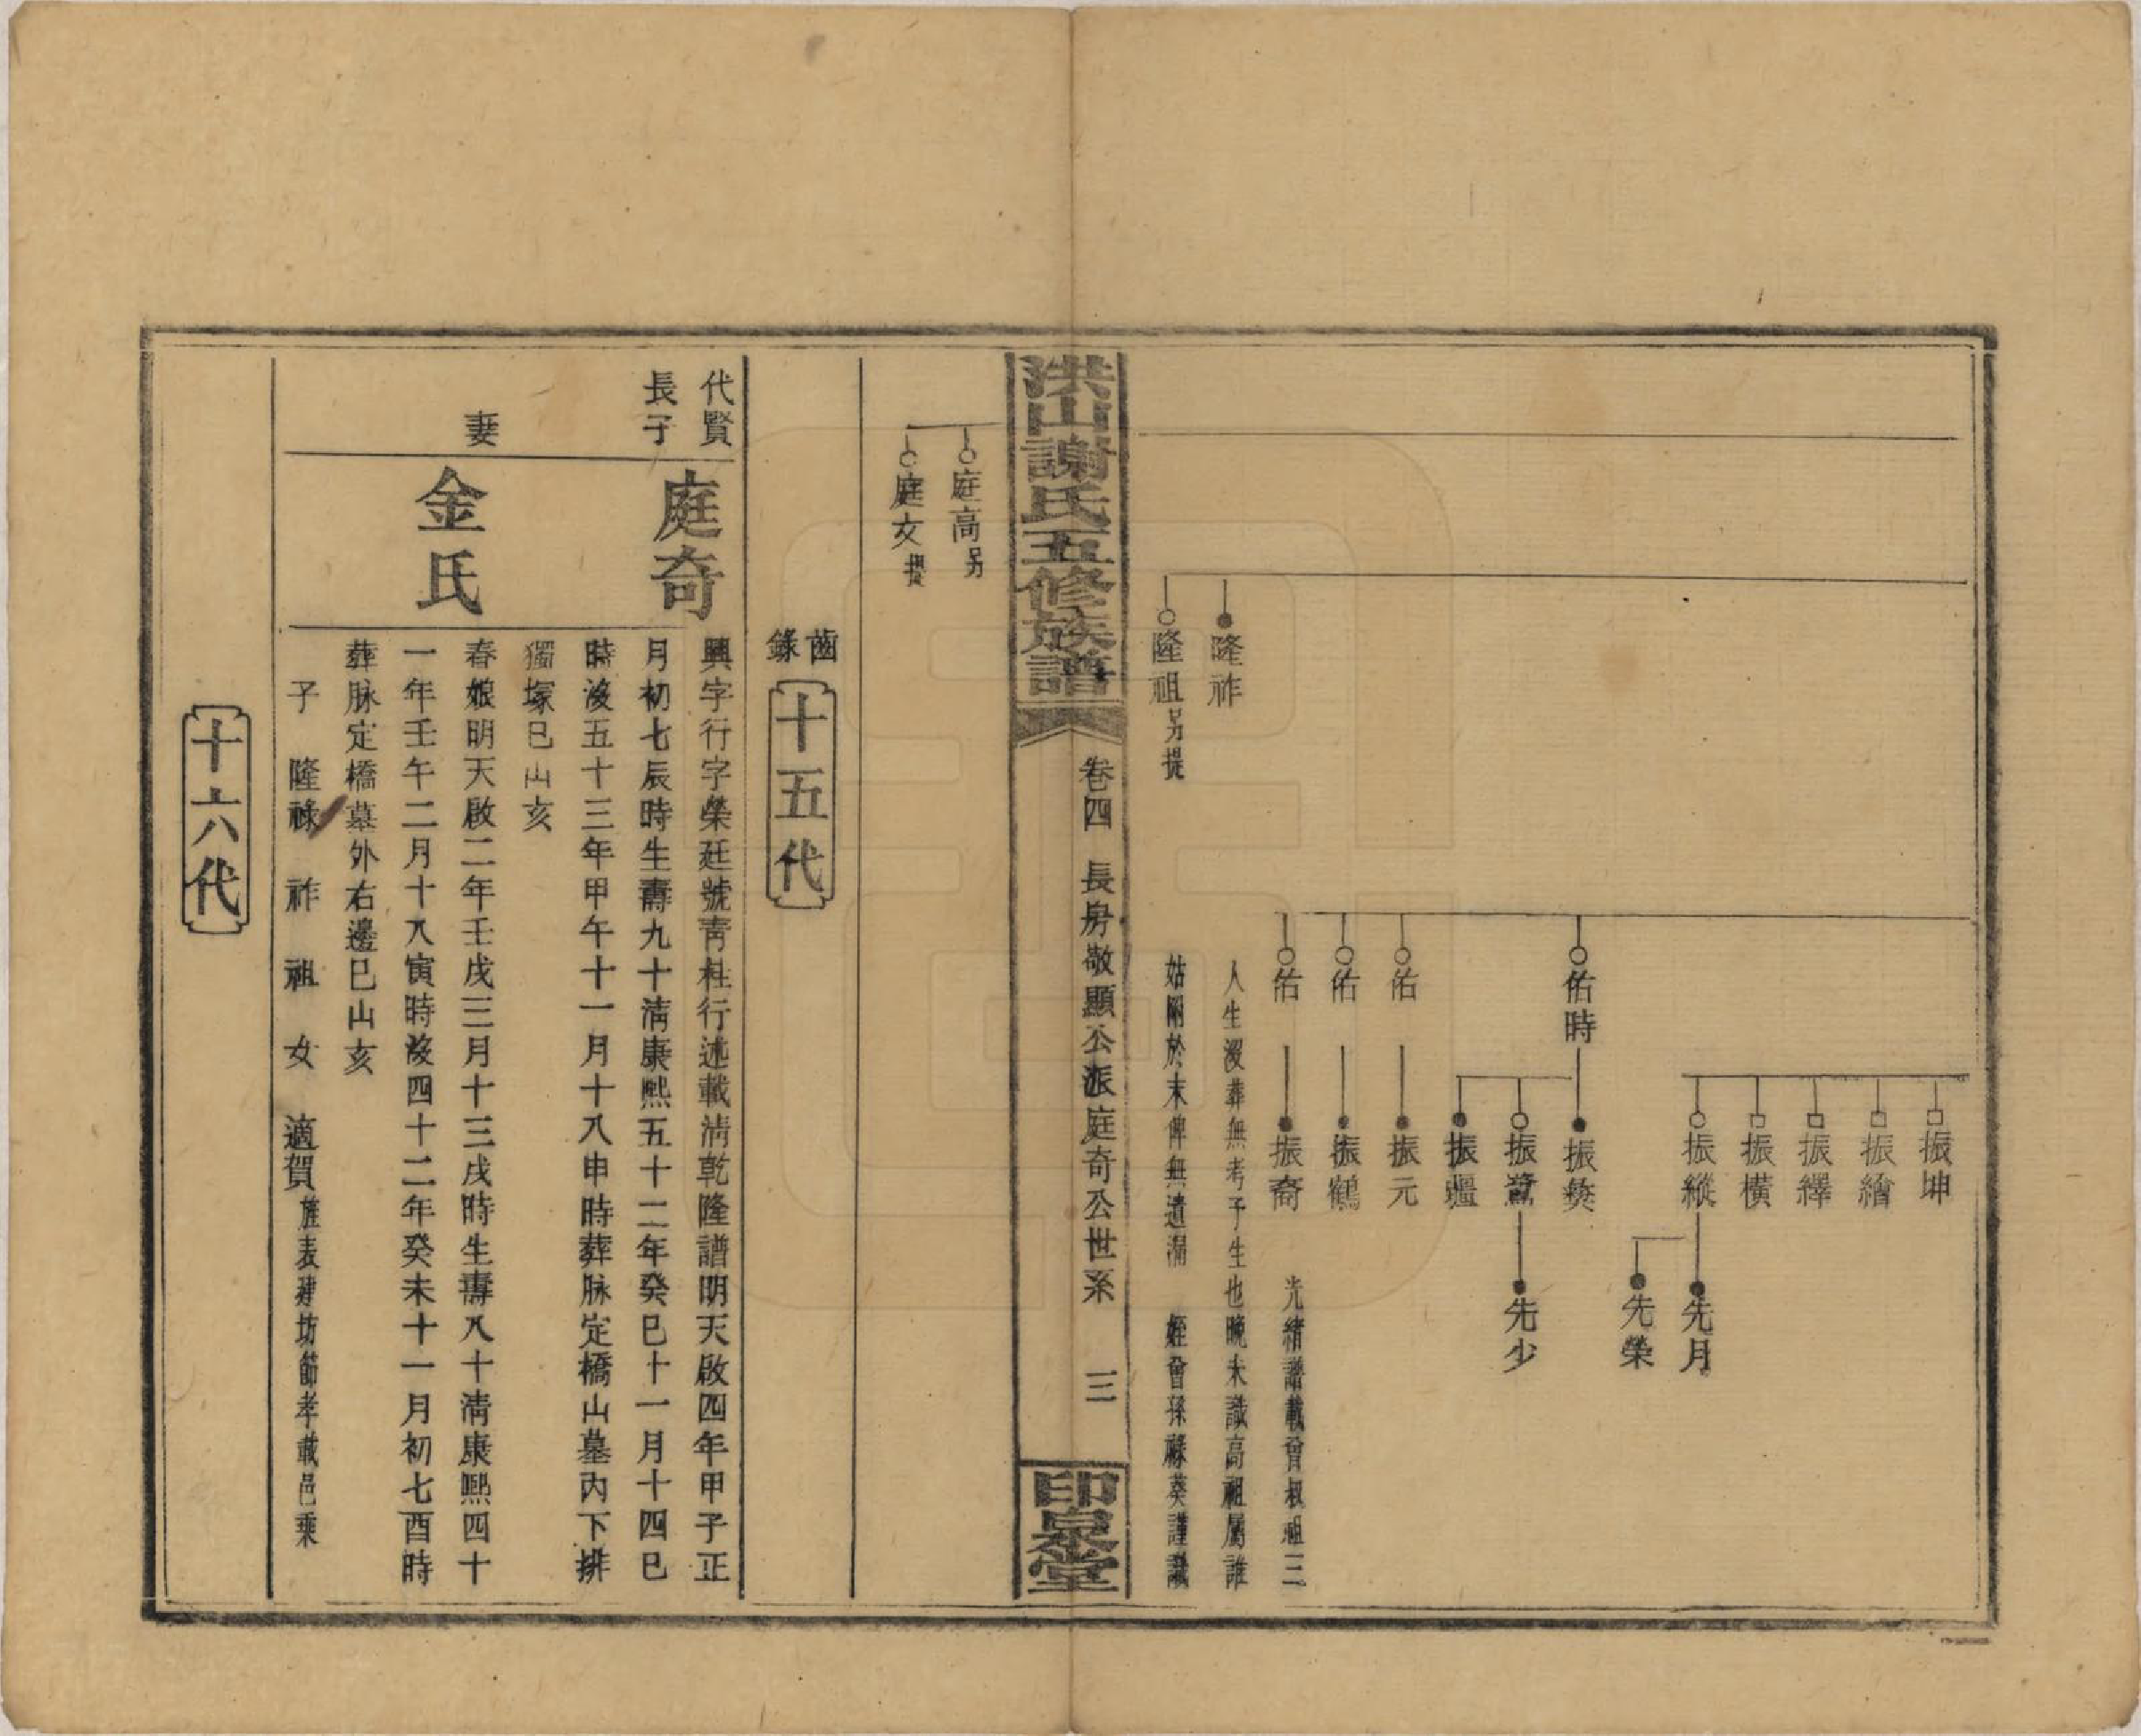 振坤
振繪
振繹
振橫
振縱
先月
先榮
佑時
振奘
振鷟
先少
振疆
佑
振元
佑
振鶴
佑
振裔
光緒譜載曾叔祖三
人生沒葬無考子生也晚未識高祖屬誰
姑附於末俾無遺漏　姪曾孫祿葵謹識
隆祚
隆祖另提
洪山謝氏五修族譜
卷四　長房敬顯公派庭奇公世系　三
印泉堂
庭高另
庭女提
齒錄
十五代
代賢長子
庭奇
興字行字榮廷號青桂行述載清乾隆譜明天啟四年甲子正
月初七辰時生壽九十清康熙五十二年癸巳十一月十四巳
時沒五十三年甲午十一月十八申時葬脉定橋山墓內下排
獨塚巳山亥
妻
金氏
春娘明天啟二年壬戌三月十三戌時生壽八十清康熙四十
一年壬午二月十八寅時沒四十二年癸未十一月初七酉時
葬脉定橋墓外右邊巳山亥
子　隆祿　祚　祖　女　適賀旌表建坊節孝載邑乘
十六代